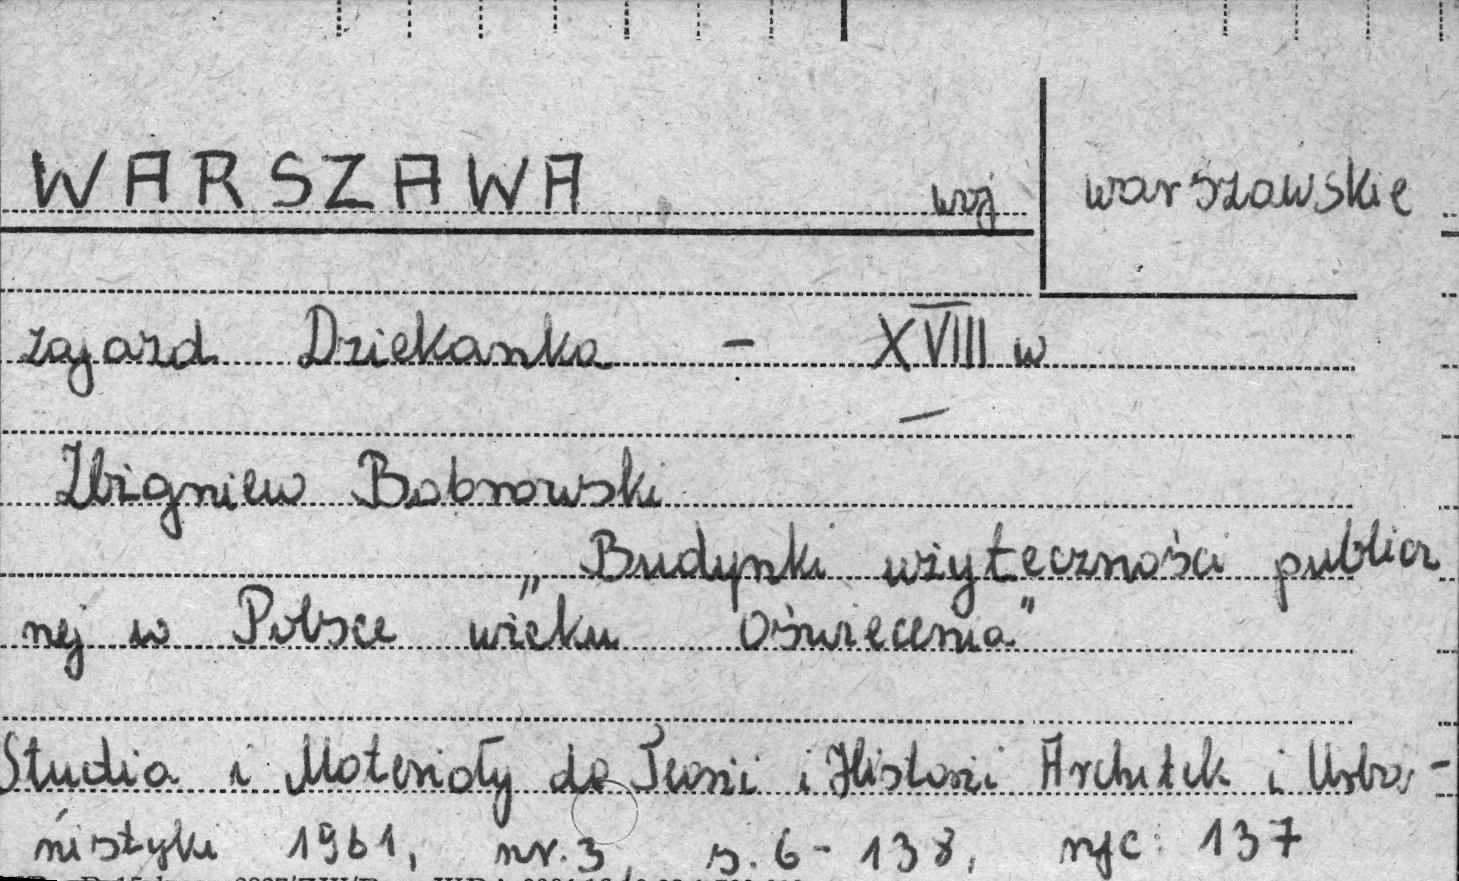 WARSZAWA woj warszawskie
zajazd Dziekanka - XVIII w
Zbigniew Bobrowski
„Budynki użyteczności publicz
nej w Polsce wieku Oświecenia"
Studia i Materiały do Teorii i Historii Architek i Urba-
nistyki 1961, nr. 3, s. 6 - 138, ryc: 137